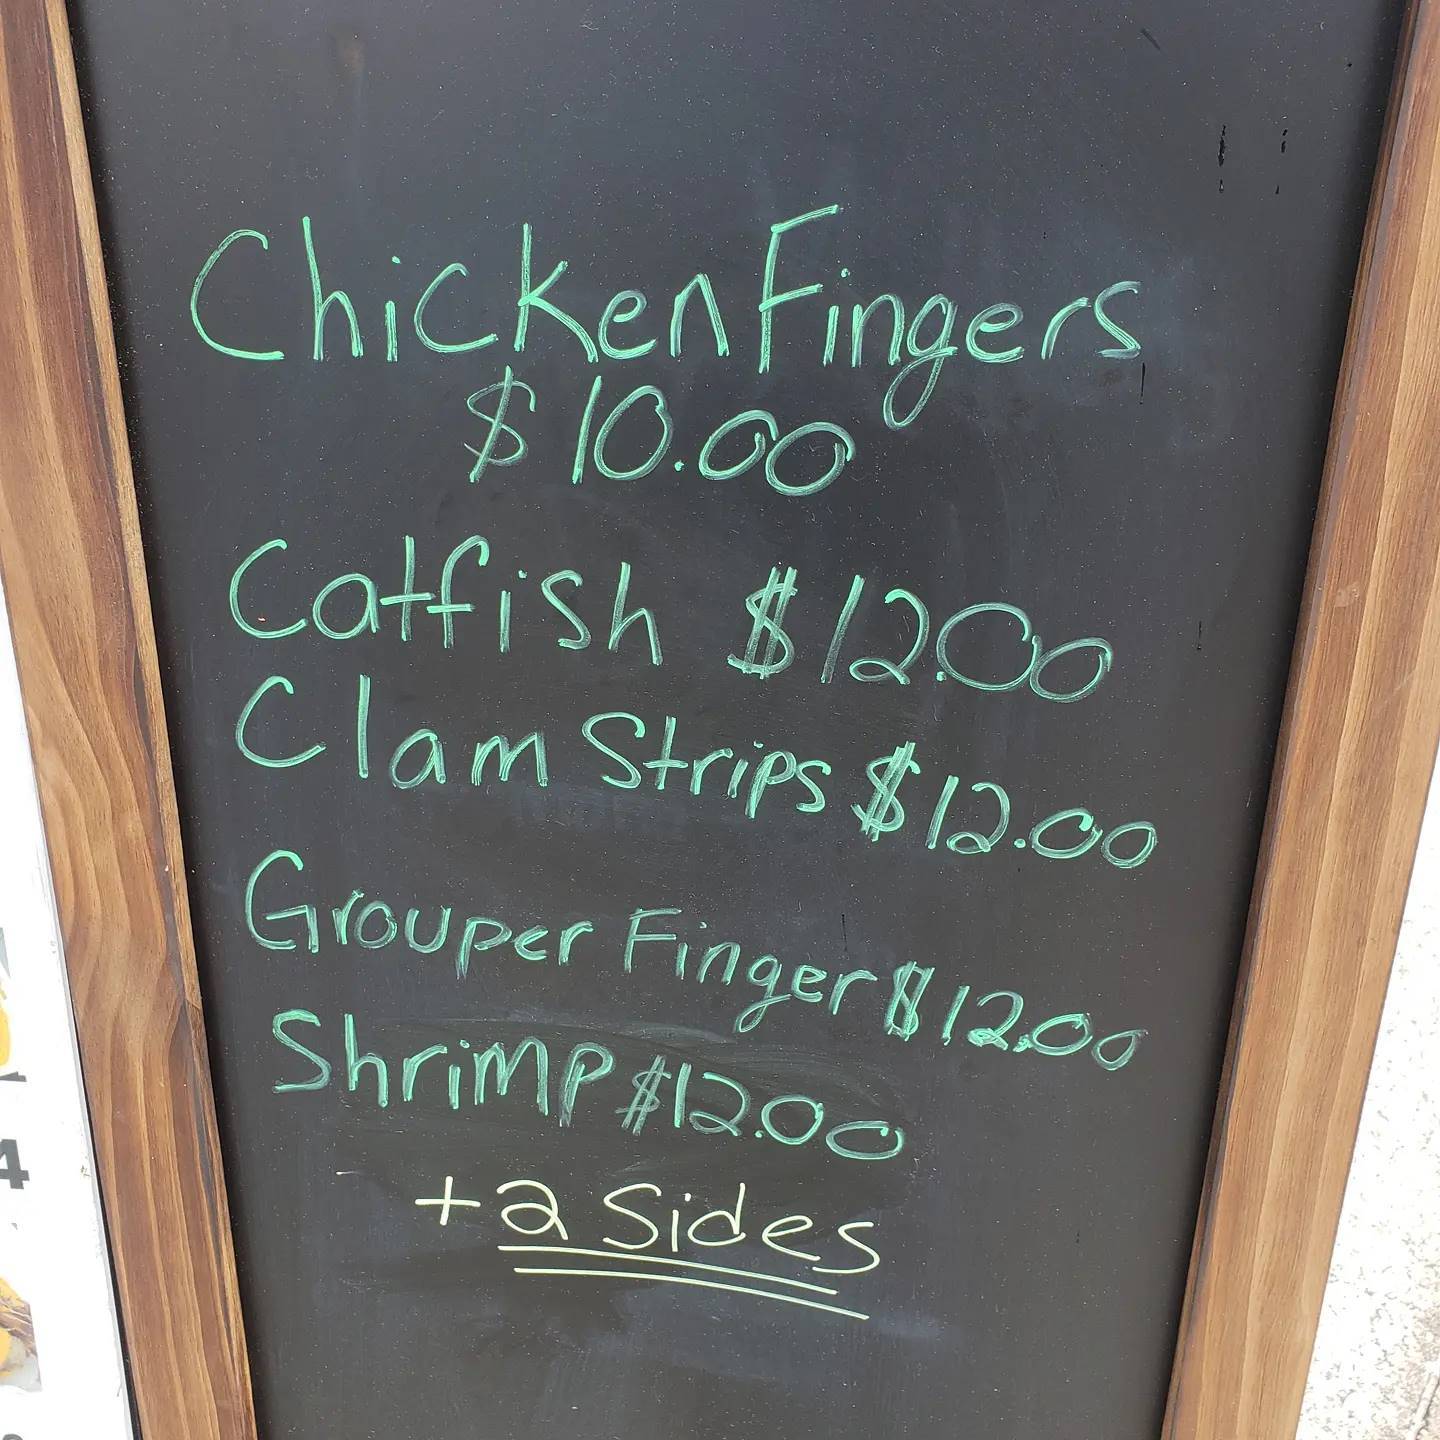 Chicken Fingers
$10.00
Catfish $12.00
Clam Strips $12.00
Grouper Finger $12.00
Shrimp $12.00
+2 Sides
4